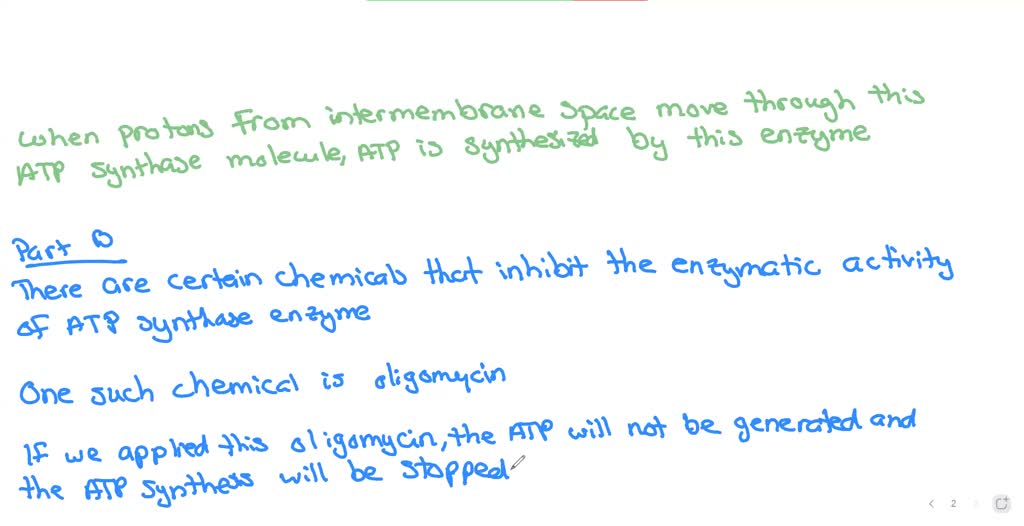 When protons from intermembrane space move through this
ATP synthase molecule, ATP is synthesized by this enzyme
Part B
There are certain chemicals that inhibit the enzymatic activity
of ATP synthase enzyme
One such chemical is oligomycin
If we applied this oligomycin, the ATP will not be generated and
the ATP synthesis will be stopped
2